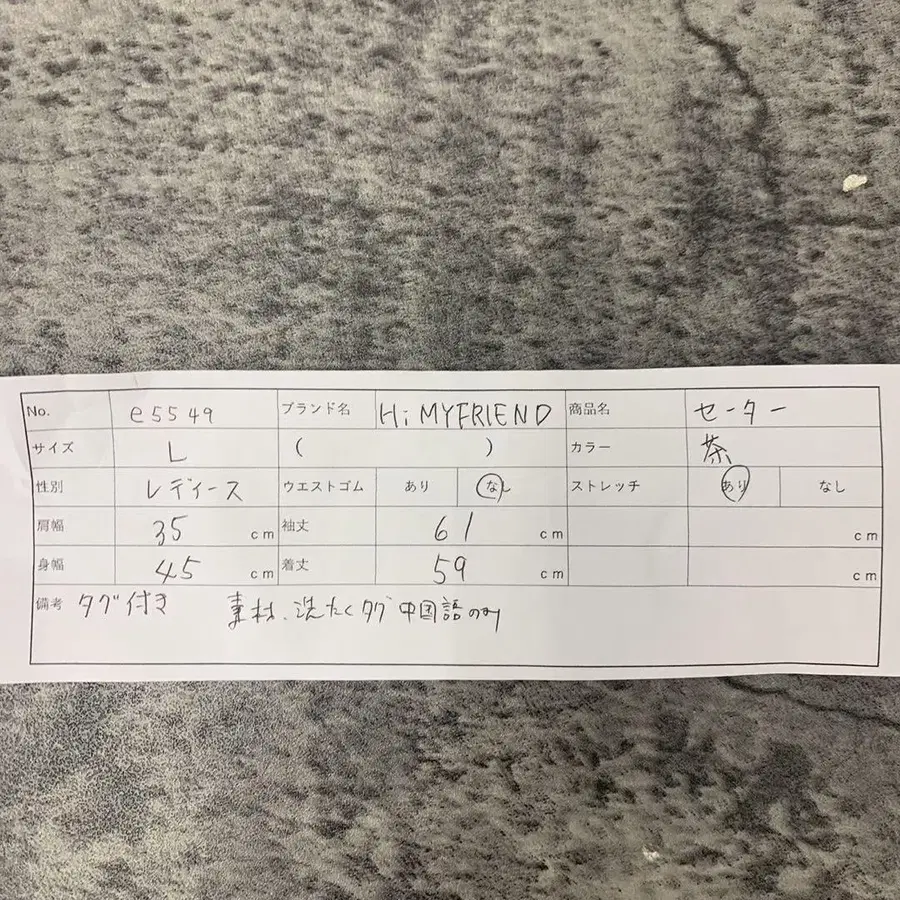 No. e5549 ブランド名 Hi MYFRIEND 商品名 セーター
サイズ L ( ) カラー 茶
性別 レディース ウエストゴム あり なし ストレッチ あり なし
肩幅 35 cm 袖丈 61 cm cm
身幅 45 cm 着丈 59 cm cm
備考 タグ付き 素材、洗たくタグ中国語のみ